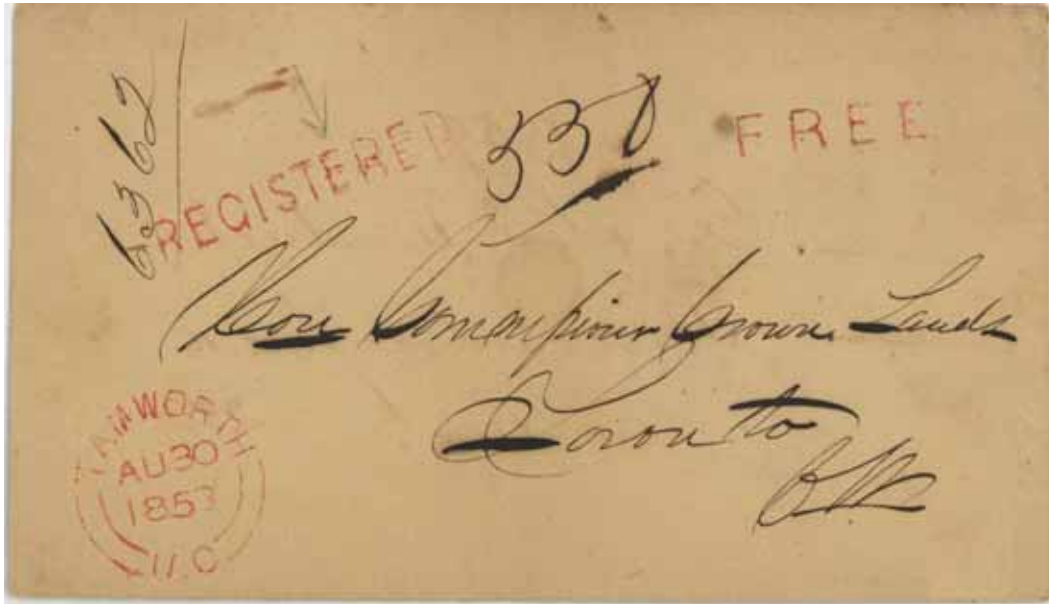 REGISTERED
FREE
Hon Commissioner Crown Lands
Toronto
TAMWORTH
AU 30
1853
U.C